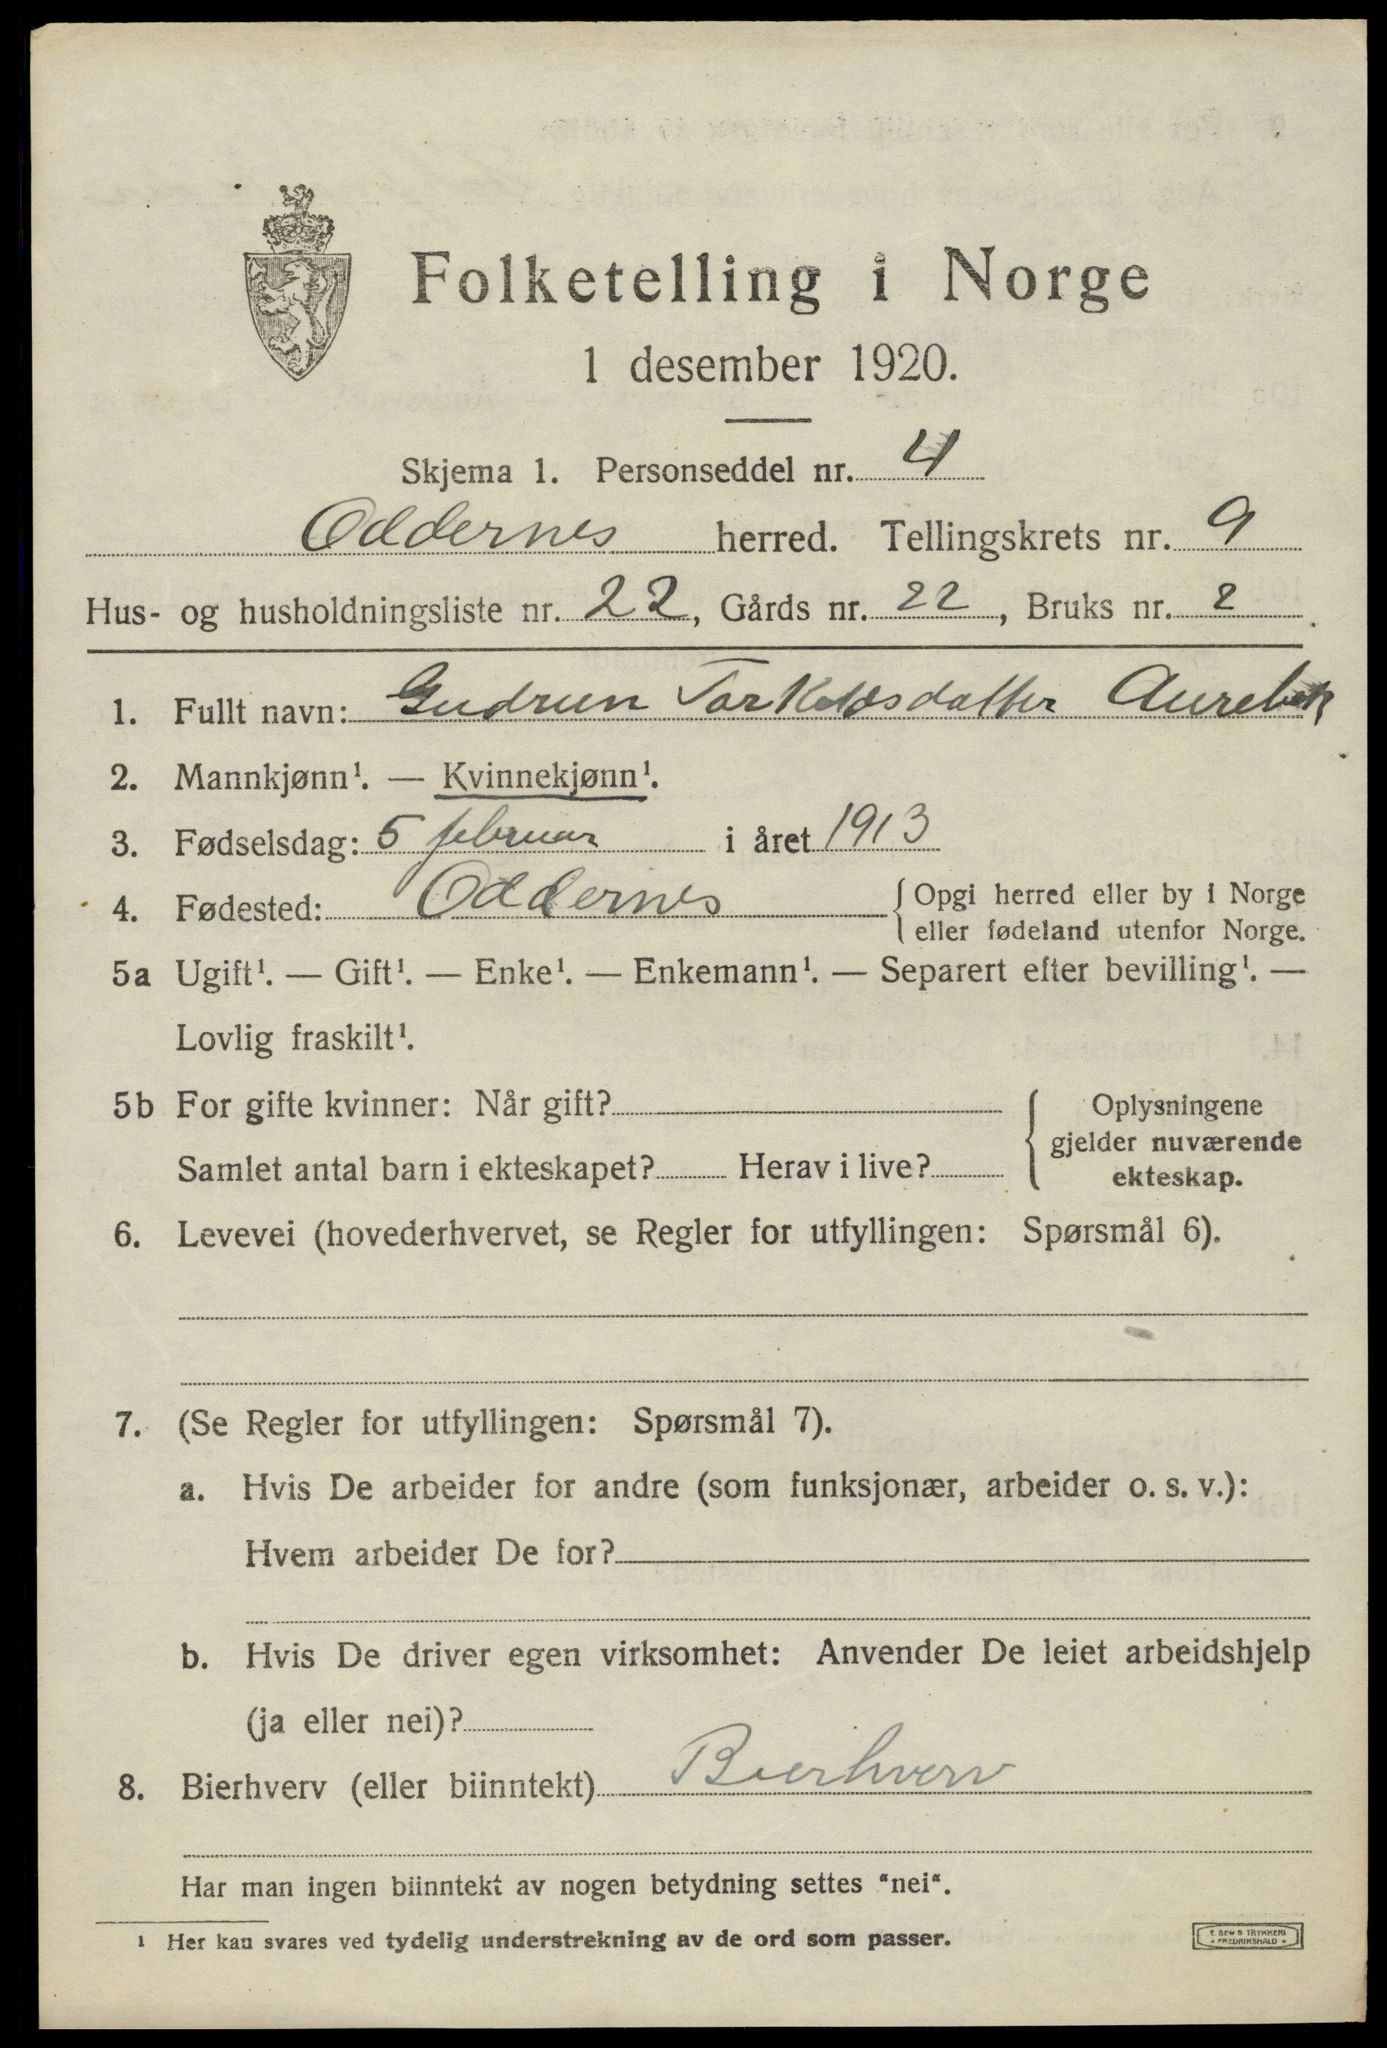 Folketelling i Norge
1 desember 1920.
Skjema 1. Personseddel nr. 4
Oddernes herred. Tellingskrets nr. 9
Hus- og husholdningsliste nr. 22, Gårds nr. 22, Bruks nr. 2
1. Fullt navn: Gudrun Tarkeldsdatter Aurebek
2. Mannkjønn¹. — Kvinnekjønn¹.
3. Fødselsdag: 5 februar i året 1913
4. Fødested: Oddernes { Opgi herred eller by i Norge
eller fødeland utenfor Norge.
5a Ugift¹. — Gift¹. — Enke¹. — Enkemann¹. — Separert efter bevilling¹. —
Lovlig fraskilt¹.
5b For gifte kvinner: Når gift? { Oplysningene
gjelder nuværende
Samlet antal barn i ekteskapet? Herav i live? ekteskap.
6. Levevei (hovederhvervet, se Regler for utfyllingen: Spørsmål 6).
7. (Se Regler for utfyllingen: Spørsmål 7).
a. Hvis De arbeider for andre (som funksjonær, arbeider o. s. v.):
Hvem arbeider De for?
b. Hvis De driver egen virksomhet: Anvender De leiet arbeidshjelp
(ja eller nei)?
8. Bierhverv (eller biinntekt) Bierhverv
Har man ingen biinntekt av nogen betydning settes "nei".
¹ Her kan svares ved tydelig understrekning av de ord som passer.
E. SEM'S TRYKKERI
FREDRIKSHALD